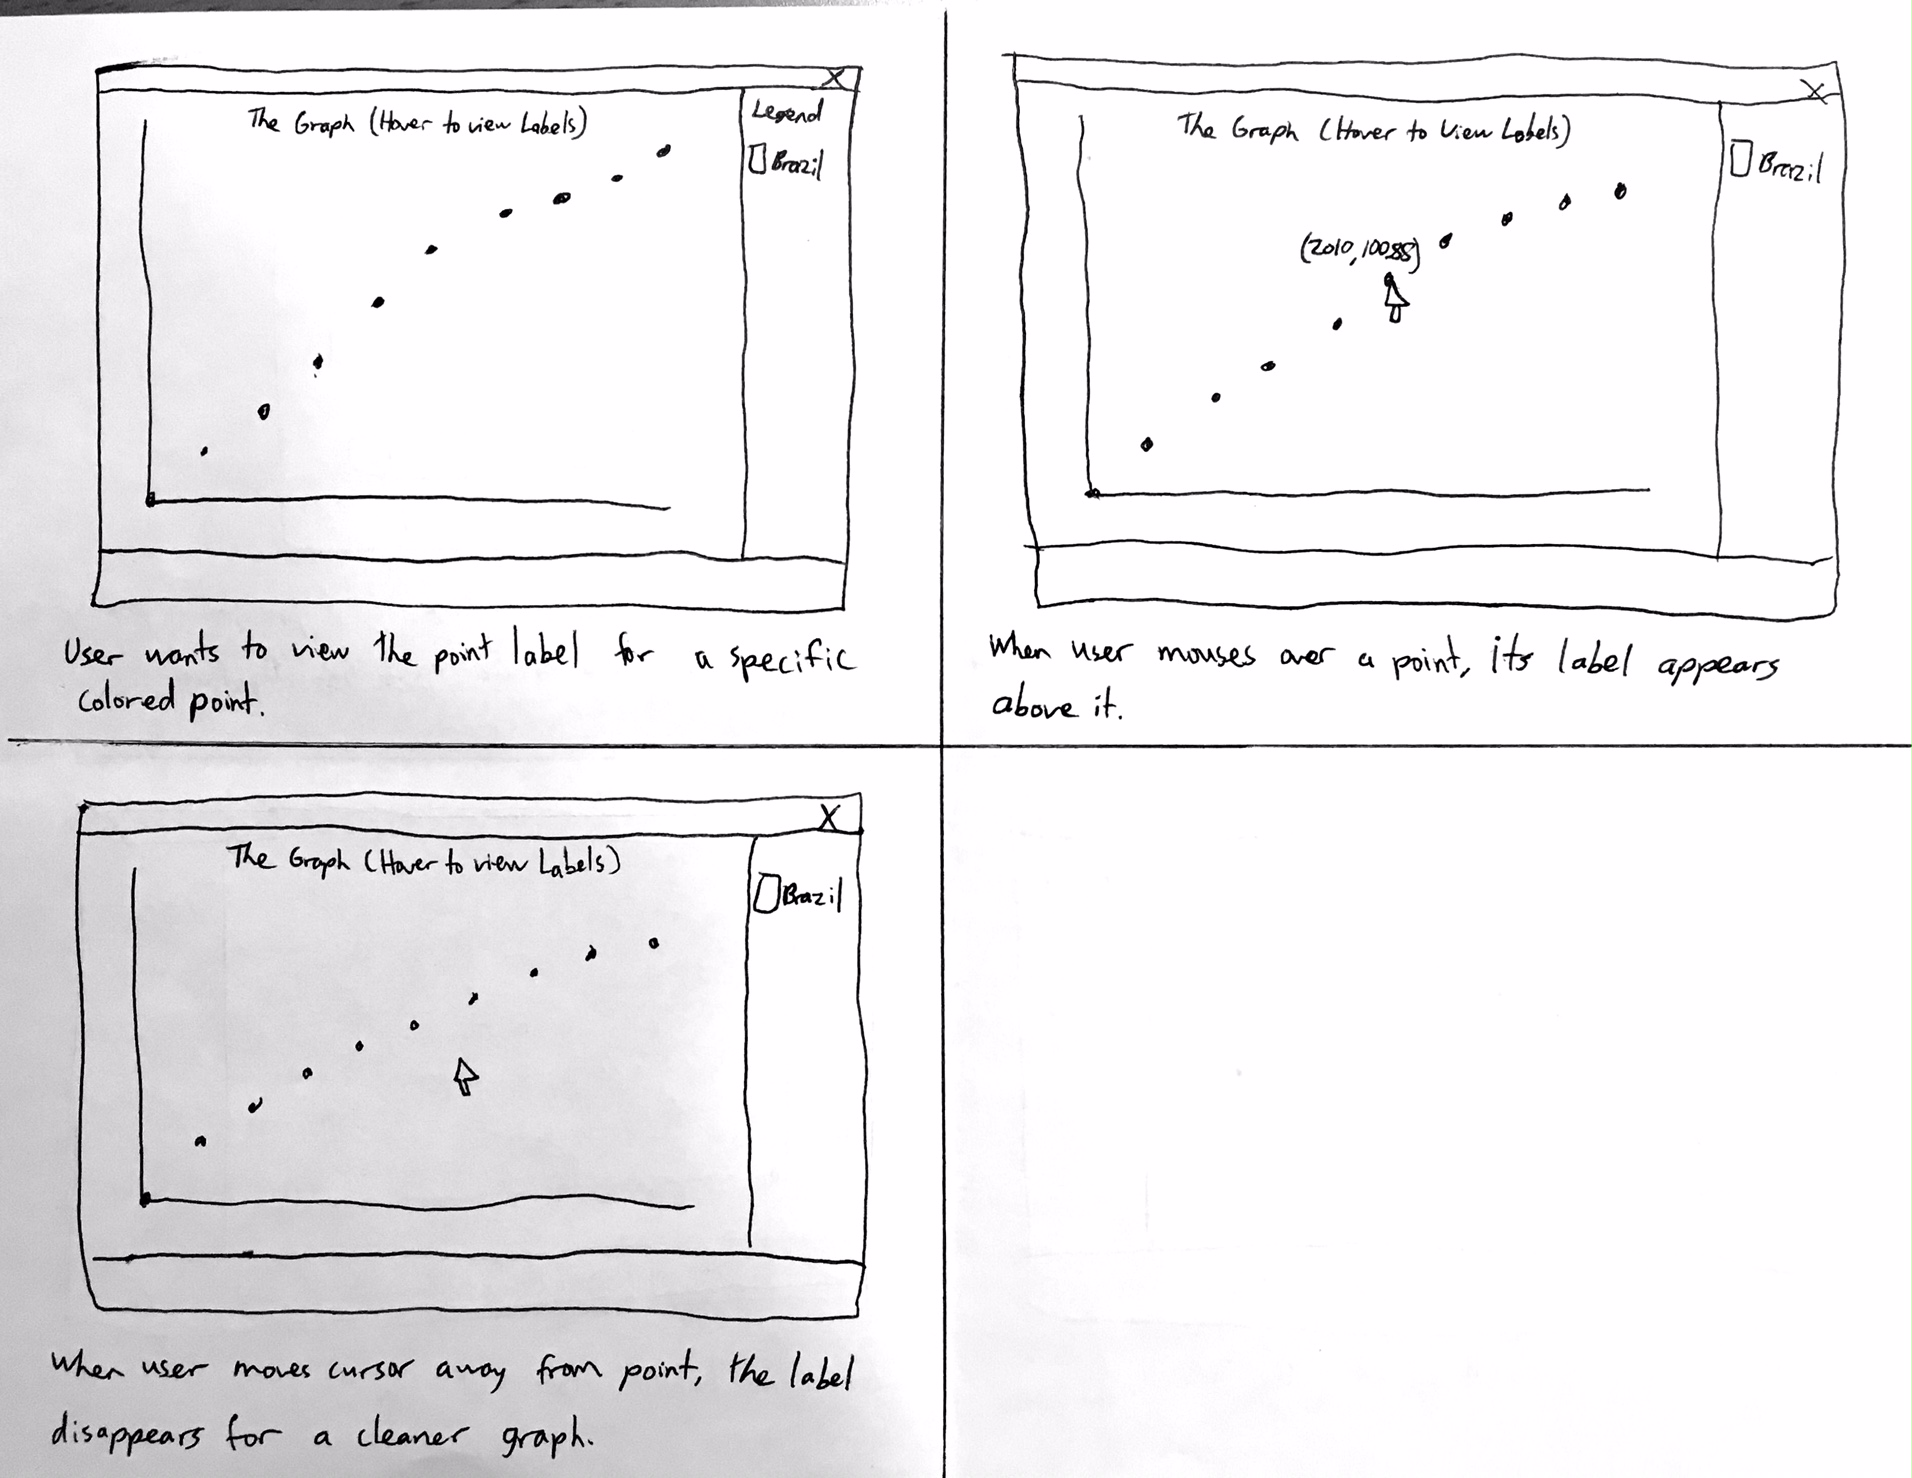 X
The Graph (Hover to view Labels)
Legend
Brazil
User wants to view the point label for a specific
colored point.
X
The Graph (Hover to View Labels)
Brazil
(2010, 10088)
When user mouses over a point, its label appears
above it.
X
The Graph (Hover to view Labels)
Brazil
When user moves cursor away from point, the label
disappears for a cleaner graph.